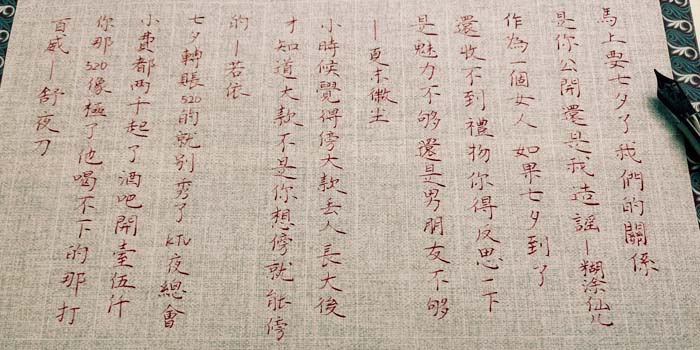 馬上要七夕了我們的關係
是你公開還是我造謠—糊涂仙儿
作為一個女人如果七夕到了
還收不到禮物你得反思一下
是魅力不够還是男朋友不够
—夏末土
小時候覺得傍大款丢人長大後
才知道大款不是你想傍就能傍
的—若依
七夕轉賬520的就别秀了KTV夜總會
小費都两千起了酒吧開臺伍仟
你那520像極了他喝不下的那打
百威—舒夜刀